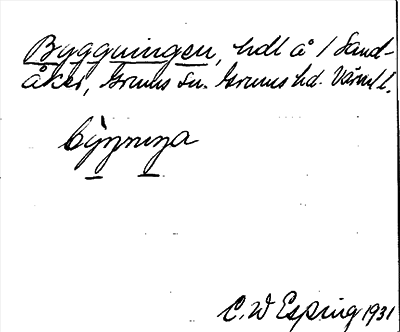 Byggningen, hdl å 1 Sand-
åker, Grums sn. Grums hd. Värml.
C. W Esping 1931